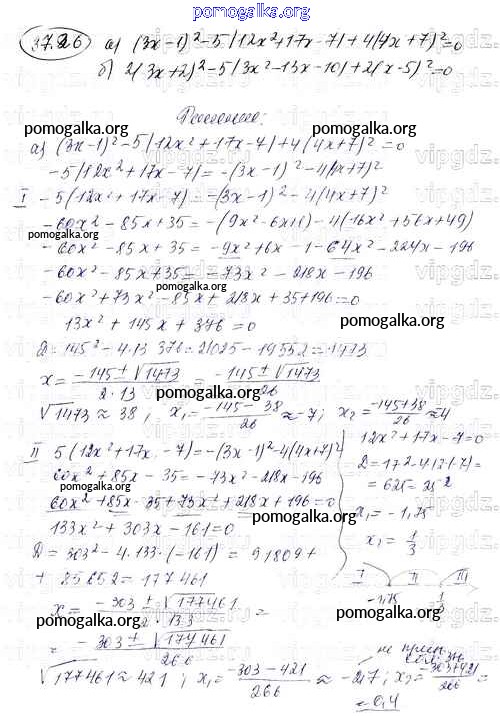 pomogalka.org
37.26 а) (3x-1)²-5|12x²+17x-7|+4(4x+7)²=0
б) 2(3x+2)²-5|3x²-13x-10|+2(x-5)²=0
Решение:
pomogalka.org pomogalka.org
а) (3x-1)²-5|12x²+17x-7|+4(4x+7)²=0
-5|12x²+17x-7|=-(3x-1)²-4(4x+7)²
I -5(12x²+17x-7)=-(3x-1)²-4(4x+7)²
-60x²-85x+35=-(9x²-6x+1)-4(16x²+56x+49)
pomogalka.org
-60x²-85x+35=-9x²+6x-1-64x²-224x-196
-60x²-85x+35=-73x²-218x-196
pomogalka.org
-60x²+73x²-85x+218x+35+196=0
13x²+145x+376=0
pomogalka.org
D=145²-4·13·376=21025-19552=1473
x=(-145±√1473)/(2·13)=(-145±√1473)/26
pomogalka.org
√1473≈38; x₁=(-145-38)/26≈-7; x₂=(-145+38)/26≈4
II 5(12x²+17x-7)=-(3x-1)²-4(4x+7)²
60x²+85x-35=-73x²-218x-196
pomogalka.org
60x²+85x-35+73x²+218x+196=0
pomogalka.org
133x²+303x-161=0
D=303²-4·133·(-161)=91809+
+85652=177461
x=(-303±√177461)/(2·133)=
pomogalka.org
=(-303±√177461)/266
√177461≈421; x₁=(-303-421)/266≈-2,7; x₂=(-303+421)/266=
=0,4
12x²+17x-7=0
D=17²-4·12·(-7)=
=625=25²
x₁=-1,75
x₁=1/3
I II III
-1,75 1/3
pomogalka.org